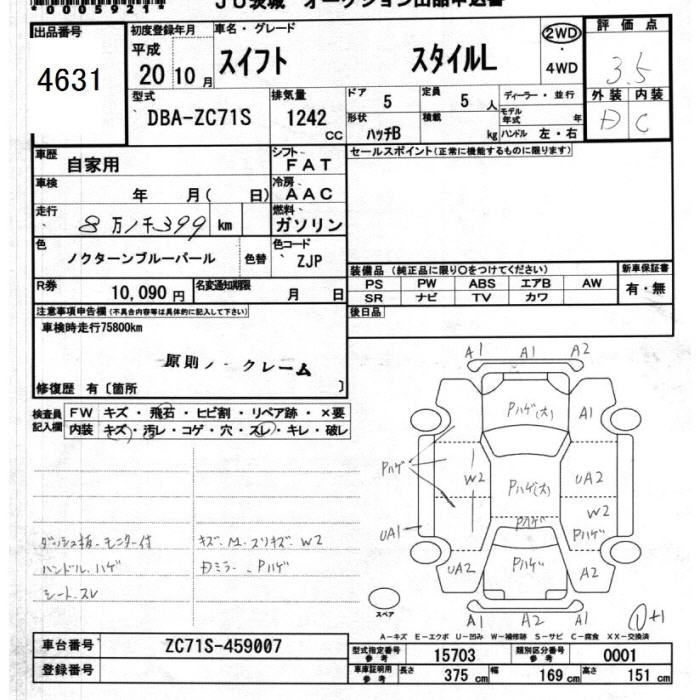 *0005921*
JU茨城 オークション出品申込書
出品番号 初度登録年月 車名・グレード 2WD 評価点
4631 平成 20 10月 スイフト スタイルL 4WD 3.5
型式 排気量 ドア 定員 ディーラー・並行 外装 内装
DBA-ZC71S 1242 CC 5 5人 モデル年式 年 D C
形状 積載
ハッチB kg ハンドル 左・右
車歴 自家用 シフト FAT セールスポイント(正常に機能するものに限ります)
車検 年 月( 日) 冷房 AAC
走行 8万1千399 km 燃料 ガソリン
色 ノクターンブルーパール 色替 色コード ZJP
装備品(純正品に限り○をつけてください) 新車保証書
PS PW ABS エアB AW 有・無
SR ナビ TV カワ
R券 10,090円 名変通知期限 月 日
後日品
注意事項申告欄(不具合内容等は具体的に記入して下さい)
車検時走行75800km
原則ノークレーム
修復歴 有〔箇所 〕
検査員記入欄 FW キズ・飛石・ヒビ割・リペア跡・×要
内装 キズ・汚レ・コゲ・穴・スレ・キレ・破レ
ダッシュ板.モニター付 キズ.M.スリキズ.W2
ハンドル.ハゲ Dミラー.Pハゲ
シート.スレ
A1 A1 A2
Pハゲ(大) A1
Pハゲ
W2 Pハゲ(大) UA2
W2
Pハゲ Pハゲ
UA1
UA2 Pハゲ A2
スペア
A1 A2 A1
A-キズ E-エクボ U-凹み W-補修跡 S-サビ C-腐食 XX-交換済
車台番号 ZC71S-459007 型式指定番号 参考 15703 類別区分番号 参考 0001
登録番号 車庫証明用 参考 長さ 375 cm 幅 169 cm 高さ 151 cm